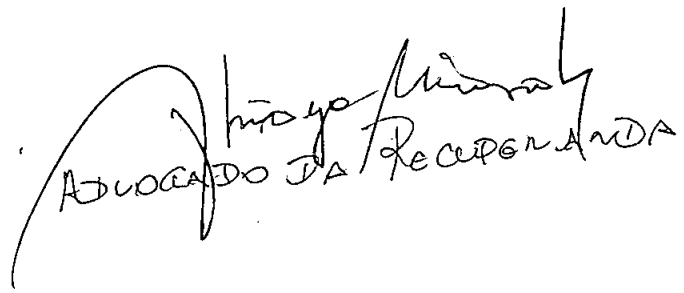 Thiago
ADVOGADO DA RECUPERANDA